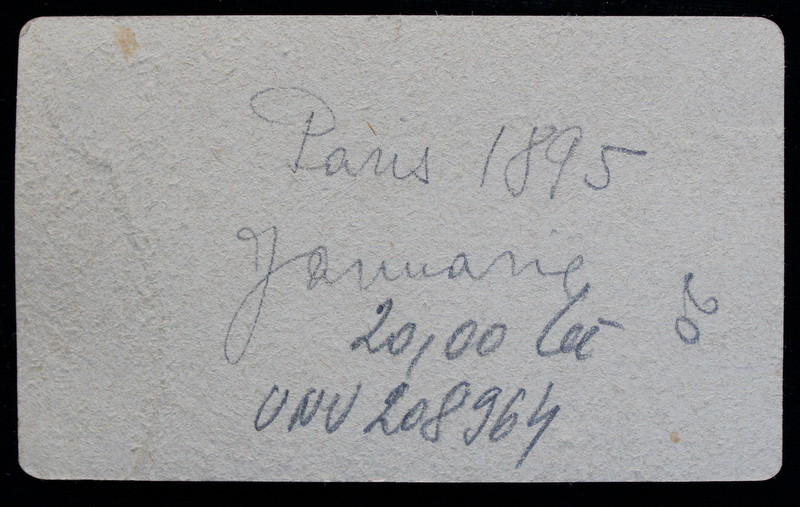 Paris 1895
Januarie
20,00 lei
20
UNU 208964